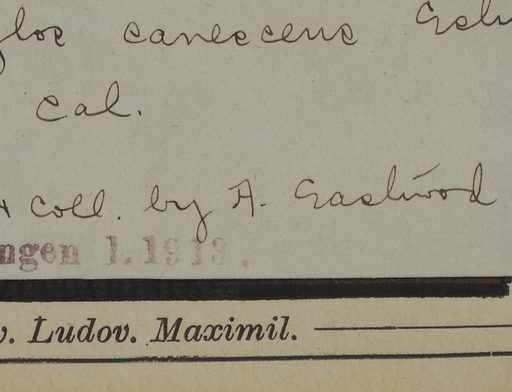 canescens
Cal.
coll. by A. Eastwood
ngen 1. 1913.
v. Ludov. Maximil.